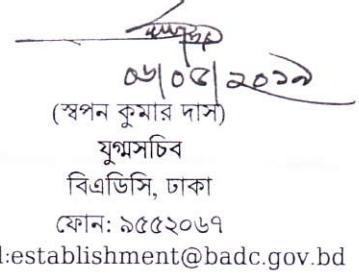 ০৬/০৫/২০১৯
(স্বপন কুমার দাস)
যুগ্মসচিব
বিএডিসি, ঢাকা
ফোন: ৯৫৫২০৬৭
l:establishment@badc.gov.bd